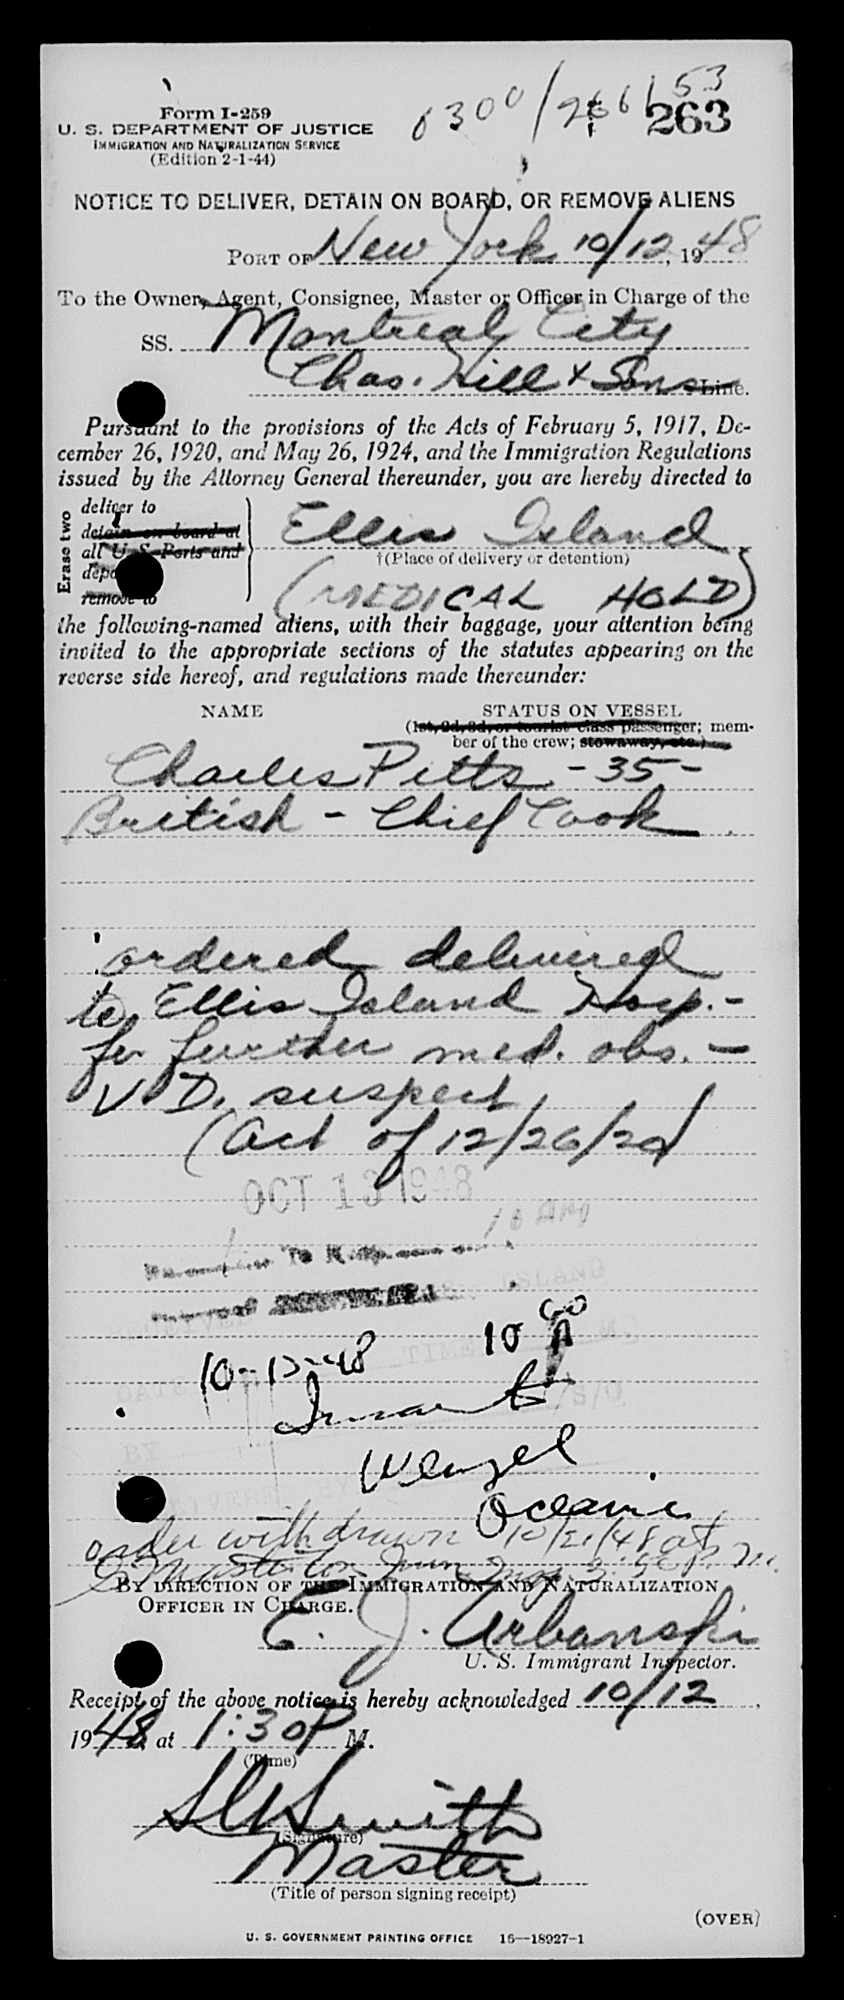 Form I-259
U. S. DEPARTMENT OF JUSTICE
IMMIGRATION AND NATURALIZATION SERVICE
(Edition 2-1-44)
0300/266153
263
NOTICE TO DELIVER, DETAIN ON BOARD, OR REMOVE ALIENS
PORT OF New York 10/12, 1948
To the Owner, Agent, Consignee, Master or Officer in Charge of the
SS. Montreal City
Chas. Hill & Sons Line.
Pursuant to the provisions of the Acts of February 5, 1917, De-
cember 26, 1920, and May 26, 1924, and the Immigration Regulations
issued by the Attorney General thereunder, you are hereby directed to
Erase two
deliver to
detain on board at
all U S Ports and
remove to
Ellis Island
†(Place of delivery or detention)
(MEDICAL HOLD)
the following-named aliens, with their baggage, your attention being
invited to the appropriate sections of the statutes appearing on the
reverse side hereof, and regulations made thereunder:
NAME STATUS ON VESSEL
(1st, 2d, 3d, or tourist class passenger; mem-
ber of the crew; stowaway, etc.)
Charles Pitts - 35 -
British - Chief Cook
ordered delivered
to Ellis Island Hosp. -
for further med. obs. -
V D. suspect
(Act of 12/26/20)
OCT 13 1948
10 AM
ISLAND
TIME
10-13-48 10 00 A
Wenzel
Oceanic
order withdrawn 10/21/48 at
BY DIRECTION OF THE IMMIGRATION AND NATURALIZATION
OFFICER IN CHARGE.
E. J. Urbanski
U. S. Immigrant Inspector.
Receipt of the above notice is hereby acknowledged 10/12,
1948 at 1:30 P M.
(Time)
Smith
(Signature)
Master
(Title of person signing receipt)
(OVER)
U. S. GOVERNMENT PRINTING OFFICE 16—18927-1